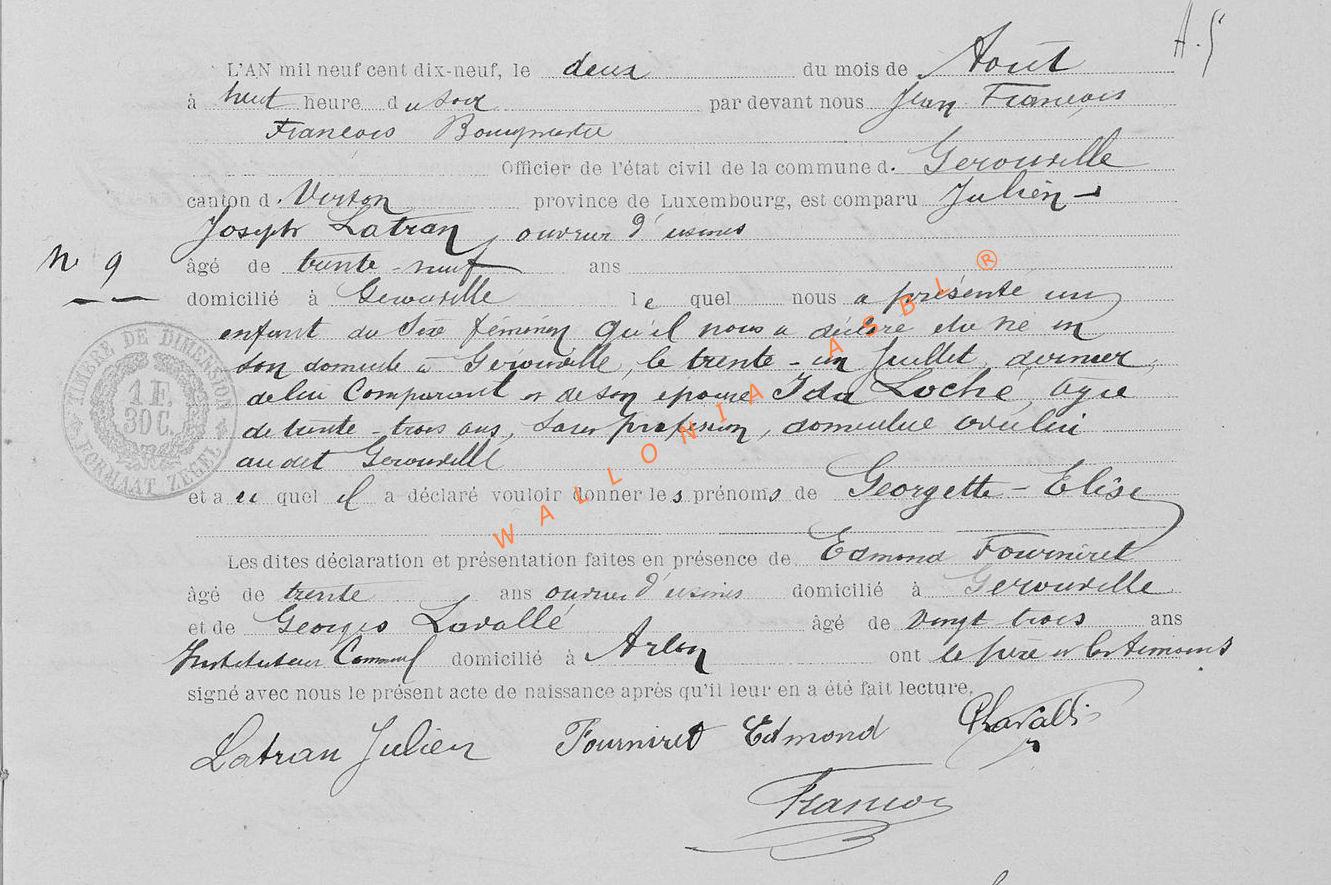 A. 5
L'AN mil neuf cent dix-neuf, le deux du mois de Août
à huit heure du soir par devant nous Jean François
François Bourgmestre
Officier de l'état civil de la commune d. Gerouville
canton d. Virton province de Luxembourg, est comparu Julien-
Joseph Latran, ouvrier d'usines
N 9
âgé de trente-neuf ans
domicilié à Gerouville le quel nous a présenté un
enfant du Sexe féminin qu'il nous a déclaré être né en
son domicile à Gerouville, le trente-un Juillet, dernier,
de lui Comparant et de son épouse Ida Loché, âgée
de trente-trois ans, Sans profession, domiciliée avec lui
au dit Gerouville
et a u quel il a déclaré vouloir donner les prénoms de Georgette-Elise
Les dites déclaration et présentation faites en présence de Edmond Fourniret
âgé de trente ans ouvrier d'usines domicilié à Gerouville
et de Georges Lavallé âgé de vingt trois ans
Instituteur Communl domicilié à Arlon ont le père et les témoins
signé avec nous le présent acte de naissance après qu'il leur en a été fait lecture.
Latran Julien Fourniret Edmond GLavallé
François
TIMBRE DE DIMENSION
1 F.
30 C.
FORMAAT ZEGEL
WALLONIA ASBL ®